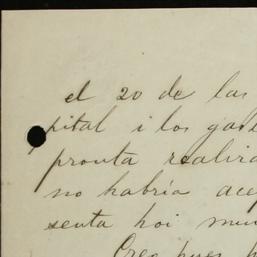 el 20 de las
pital i los gas
pronta realiza
no habría ace
senta hoi mu
Creo pues